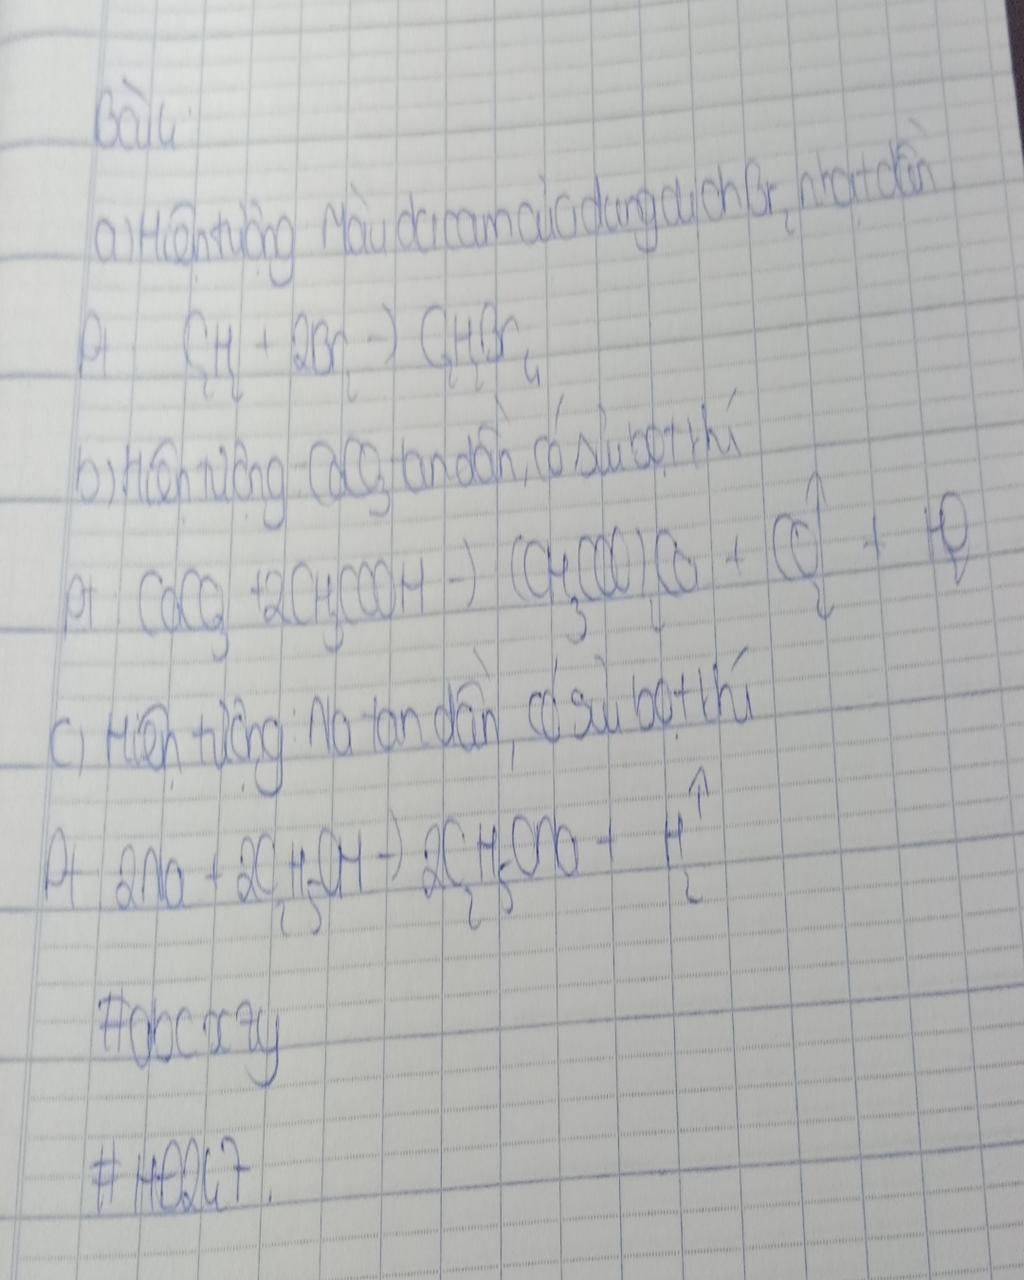 Bài 4:
a) Hiện tượng Màu da cam của dung dịch Br₂ nhạt dần
Pt C₂H₂ + 2Br₂ → C₂H₂Br₄
b) Hiện tượng: CaCO₃ tan dần, có sủi bọt khí
Pt CaCO₃ + 2CH₃COOH → (CH₃COO)₂Ca + CO₂↑ + H₂O
c) Hiện tượng: Na tan dần, có sủi bọt khí
Pt 2Na + 2C₂H₅OH → 2C₂H₅ONa + H₂↑
#abcxzy